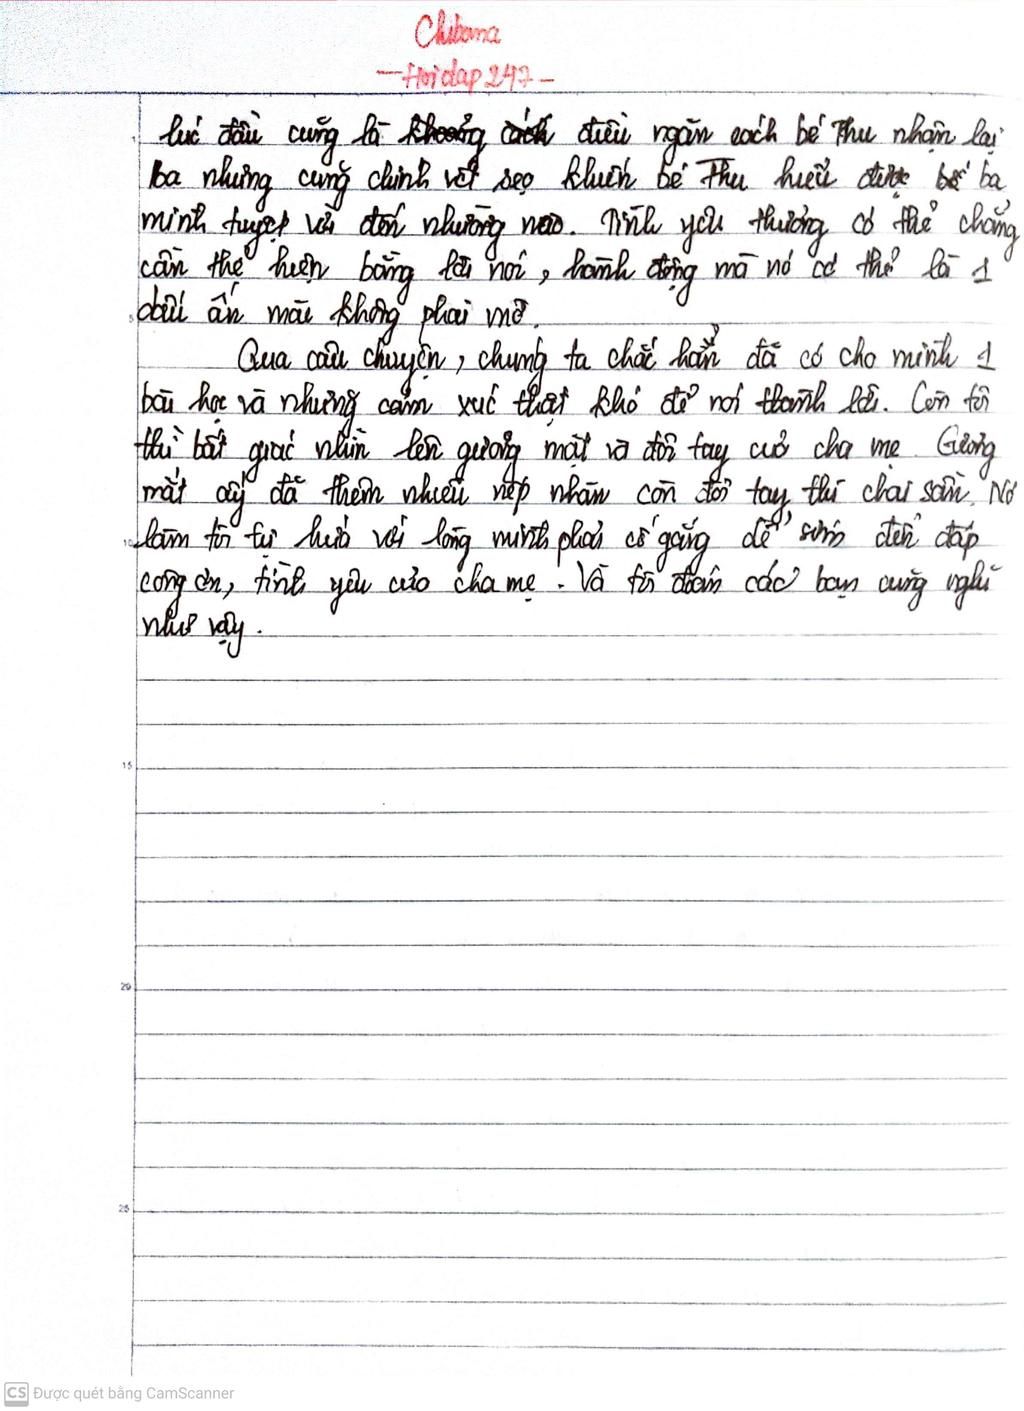 Chibana
- Hoidap 247 -
lúc đầu cũng là khoảng cách điều ngăn cách bé Thu nhận lại
ba nhưng cũng chính vết sẹo khiến bé Thu hiểu được bé ba
mình tuyệt vời đến nhường nào. Tình yêu thương có thể chẳng
cần thể hiện bằng lời nói, hành động mà nó có thể là 1
dấu ấn mãi không phai mờ.
Qua câu chuyện, chúng ta chắc hẳn đã có cho mình 1
bài học và những cảm xúc thật khó để nói thành lời. Còn tôi
thì bất giác nhìn lên gương mặt và đôi tay của cha mẹ. Gương
mặt ấy đã thêm nhiều nếp nhăn còn đôi tay thì chai sần. Nó
làm tôi tự hứa với lòng mình phải cố gắng để sớm đền đáp
công ơn, tình yêu của cha mẹ. Và tôi đoán các bạn cũng nghĩ
như vậy.
1
5
10
15
20
25
CS Được quét bằng CamScanner